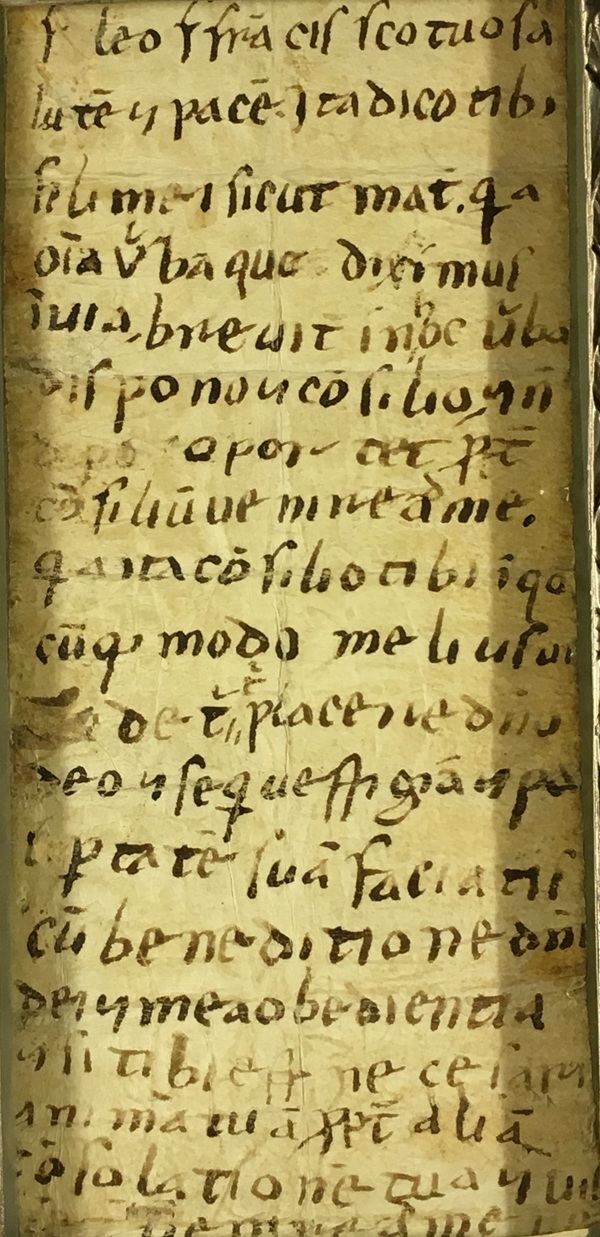 f leo f frācis scotuo sa
lutē ⁊ pacē. Ita dico tibi
fili me i sicut mat. q̄a
oīa v̆ba que diximus
ī via, breuit̄ in hoc v̆ba
dispono ⁊ cōsilio, ⁊ nō
oportet ꝓpt̄
cōsiliū uenire ad me.
q̄a ita cōsilio tibi ī qo
cūq; modo melius ui
de t̄ t placere dn̄o
deo ⁊ seq̄ uestigiā ⁊ pa
uꝑtatē suā faciatis
cū beneditione dn̄i
dei ⁊ mea obedientia
⁊ si tibi est necesariū
animā tuā ꝓpt̄ aliā
cōsolationē tuā ⁊ uis
uenire ad me